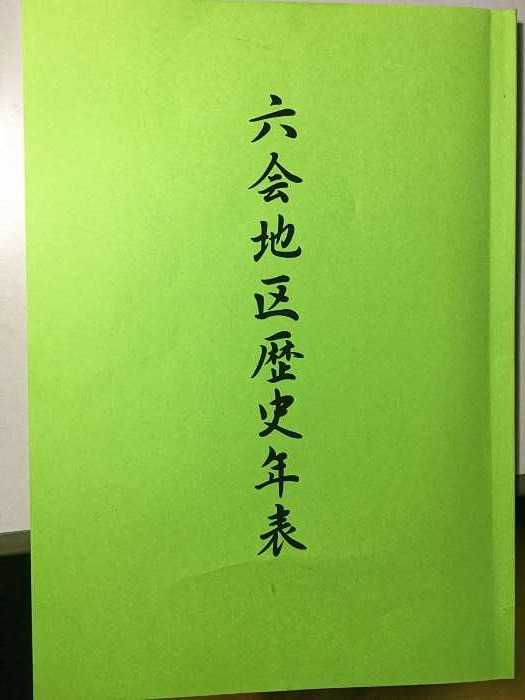 六会地区歴史年表